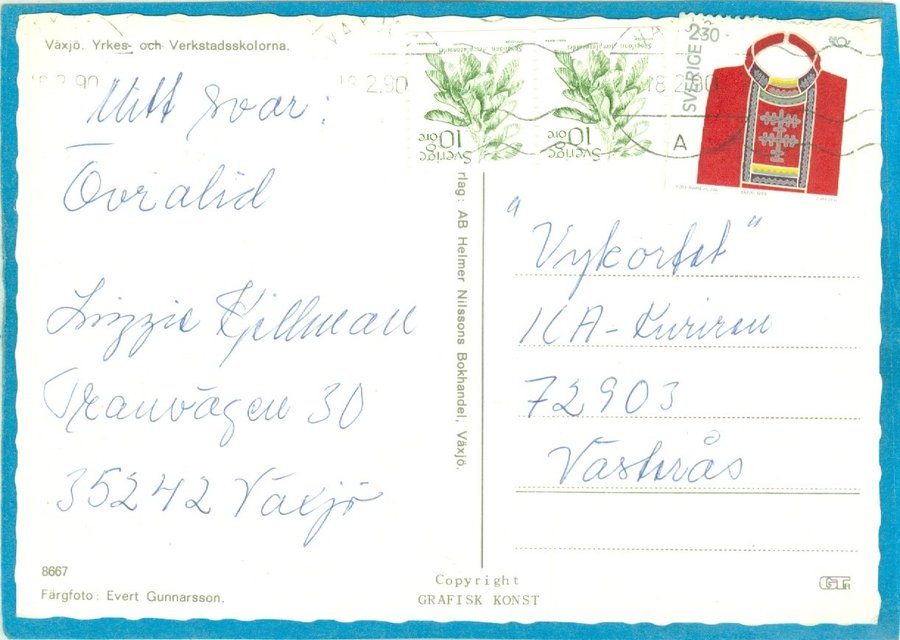 Växjö. Yrkes- och Verkstadsskolorna.
18.2.90
18.2.90
18.2.90
Mitt svar:
Övralid
Lizzie Kjellman
Tranvägen 30
35242 Växjö
8667
Färgfoto: Evert Gunnarsson.
rlag: AB Helmer Nilssons Bokhandel, Växjö.
Copyright
GRAFISK KONST
Sverige
10 öre
Sverige
10 öre
230
SVERIGE
A
"Vykortet"
ICA-Kuriren
72903
Västerås